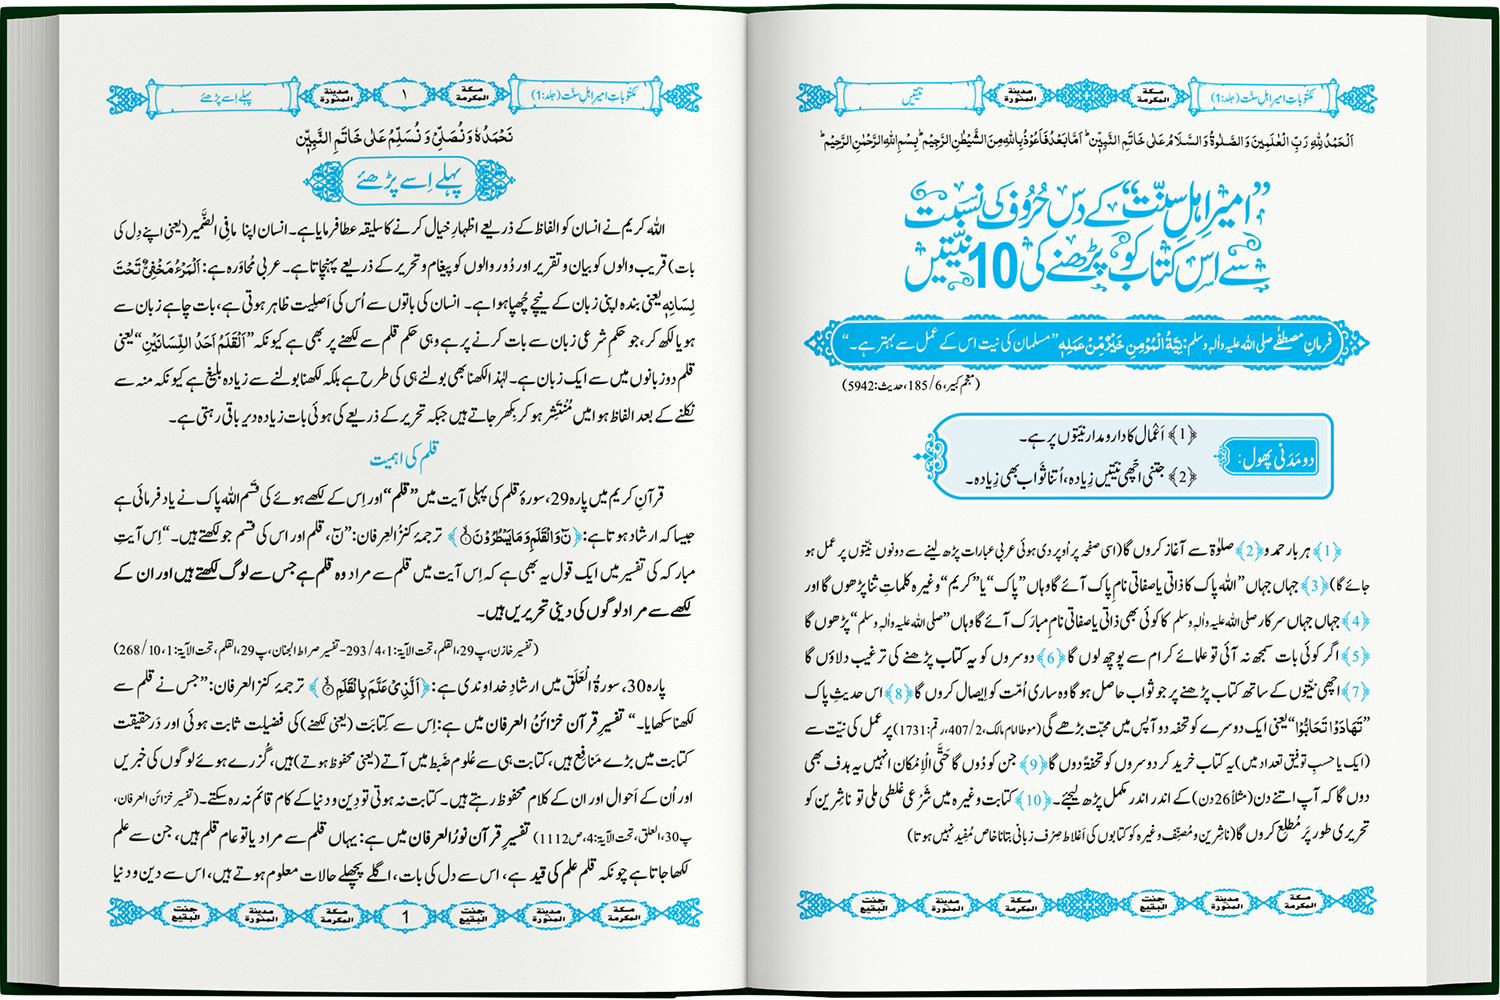 مکتوباتِ امیرِ اہلِ سنّت (جلد:1)
مكة المكرمة
مدينة المنورة
نیّتیں
اَلْحَمْدُ لِلّٰهِ رَبِّ الْعٰلَمِيْنَ وَالصَّلٰوةُ وَالسَّلَامُ عَلٰى خَاتَمِ النَّبِيّٖن ؕ اَمَّا بَعْدُ فَاَعُوْذُ بِاللّٰهِ مِنَ الشَّيْطٰنِ الرَّجِيْم ؕ بِسْمِ اللّٰهِ الرَّحْمٰنِ الرَّحِيْم ؕ
”امیرِ اہلِ سنّت“ کے دس حُرُوف کی نسبت
سے اس کتاب کو پڑھنے کی 10 نیّتیں
فرمانِ مصطفٰے صلی اللہ علیہ والہٖ وسلم: نِيَّةُ الْمُؤْمِنِ خَيْرٌ مِّنْ عَمَلِهٖ ”مسلمان کی نیت اس کے عمل سے بہتر ہے۔“
(معجم کبیر، 6/185، حدیث: 5942)
دو مَدَنی پھول:
﴿1﴾ اَعْمال کا دارومدار نیّتوں پر ہے۔
﴿2﴾ جتنی اچّھی نیّتیں زِیادہ، اُتنا ثواب بھی زِیادہ۔
﴿1﴾ ہر بار حمد و ﴿2﴾ صلوٰۃ سے آغاز کروں گا (اسی صفحہ پر اُوپر دی ہوئی عربی عبارات پڑھ لینے سے دونوں نیّتوں پر عمل ہو
جائے گا) ﴿3﴾ جہاں جہاں ”اللہ پاک کا ذاتی یا صفاتی نامِ پاک آئے گا وہاں ”پاک“ یا ”کریم“ وغیرہ کلماتِ ثنا پڑھوں گا اور
﴿4﴾ جہاں جہاں سرکار صلی اللہ علیہ والہٖ وسلم کا کوئی بھی ذاتی یا صفاتی نامِ مبارَک آئے گا وہاں ”صلی اللہ علیہ والہٖ وسلم“ پڑھوں گا
﴿5﴾ اگر کوئی بات سمجھ نہ آئی تو علمائے کرام سے پوچھ لوں گا ﴿6﴾ دوسروں کو یہ کتاب پڑھنے کی ترغیب دلاؤں گا
﴿7﴾ اچھی نیّتوں کے ساتھ کتاب پڑھنے پر جو ثواب حاصل ہو گا وہ ساری اُمّت کو اِیصال کروں گا ﴿8﴾ اس حدیثِ پاک
”تَهَادَوْا تَحَابُّوْا“ یعنی ایک دوسرے کو تحفہ دو آپس میں محبّت بڑھے گی (موطا امام مالک، 2/407، رقم: 1731) پر عمل کی نیّت سے
(ایک یا حسبِ توفیق تعداد میں) یہ کتاب خرید کر دوسروں کو تحفۃً دوں گا ﴿9﴾ جن کو دُوں گا حَتَّی الْاِمْکان انہیں یہ ہدف بھی
دوں گا کہ آپ اتنے دن (مثلاً 26 دن) کے اندر اندر مکمل پڑھ لیجئے۔ ﴿10﴾ کتابت وغیرہ میں شَرْعی غلطی ملی تو ناشِرین کو
تحریری طور پر مُطّلع کروں گا (ناشِرین و مُصنِّف وغیرہ کو کتابوں کی اَغلاط صِرف زبانی بتانا خاص مُفید نہیں ہوتا)
مكة المكرمة
مدينة المنورة
جنت البقيع
مكة المكرمة
مدينة المنورة
جنت البقيع
مکتوباتِ امیرِ اہلِ سنّت (جلد:1)
مكة المكرمة
۱
مدينة المنورة
پہلے اِسے پڑھئے
نَحْمَدُهٗ وَنُصَلِّيْ وَنُسَلِّمُ عَلٰى خَاتَمِ النَّبِيّٖن
پہلے اِسے پڑھئے
اللہ کریم نے انسان کو الفاظ کے ذریعے اظہارِ خیال کرنے کا سلیقہ عطا فرمایا ہے۔ انسان اپنا مافِی الضَّمیر (یعنی اپنے دِل کی
بات) قریب والوں کو بیان و تقریر اور دُور والوں کو پیغام و تحریر کے ذریعے پہنچاتا ہے۔ عربی مُحاوَرہ ہے: اَلْمَرْءُ مَخْفِيٌّ تَحْتَ
لِسَانِهٖ یعنی بندہ اپنی زبان کے نیچے چُھپا ہوا ہے۔ انسان کی باتوں سے اُس کی اَصلِیت ظاہر ہوتی ہے، بات چاہے زبان سے
ہو یا لکھ کر، جو حکمِ شرعی زبان سے بات کرنے پر ہے وہی حکم قلم سے لکھنے پر بھی ہے کیونکہ ”اَلْقَلَمُ اَحَدُ اللِّسَانَيْنِ“ یعنی
قلم دو زبانوں میں سے ایک زبان ہے۔ لہٰذا لکھنا بھی بولنے ہی کی طرح ہے بلکہ لکھنا بولنے سے زیادہ بلیغ ہے کیونکہ منہ سے
نکلنے کے بعد الفاظ ہوا میں مُنْتَشِر ہو کر بِکھر جاتے ہیں جبکہ تحریر کے ذریعے کی ہوئی بات زیادہ دیر باقی رہتی ہے۔
قلم کی اہمیت
قرآنِ کریم میں پارہ 29، سورۂ قلم کی پہلی آیت میں ”قلم“ اور اِس کے لکھے ہوئے کی قَسَم اللہ پاک نے یاد فرمائی ہے
جیسا کہ ارشاد ہوتا ہے: ﴿نٓ وَالْقَلَمِ وَمَا یَسْطُرُوْنَۙ﴾ ترجمۂ کنزُ العِرفان: ”نٓ، قلم اور اس کی قسم جو لکھتے ہیں۔“ اِس آیتِ
مبارکہ کی تفسیر میں ایک قول یہ بھی ہے کہ اِس آیت میں قلم سے مراد وہ قلم ہے جس سے لوگ لکھتے ہیں اور ان کے
لکھے سے مراد لوگوں کی دینی تحریریں ہیں۔
(تفسیر خازن، پ29، القلم، تحت الآیۃ: 1، 4/293- تفسیر صراط الجنان، پ29، القلم، تحت الآیۃ: 1، 10/268)
پارہ 30، سورۃُ الْعَلَق میں ارشادِ خداوندی ہے: ﴿الَّذِیْ عَلَّمَ بِالْقَلَمِۙ﴾ ترجمۂ کنز العرفان: ”جس نے قلم سے
لکھنا سکھایا۔“ تفسیرِ قرآن خزائنُ العرفان میں ہے: اِس سے کِتابَت (یعنی لکھنے) کی فضیلت ثابت ہوئی اور دَرحقیقت
کتابت میں بڑے مَنافِع ہیں، کتابت ہی سے عُلوم ضَبط میں آتے (یعنی محفوظ ہوتے) ہیں، گُزرے ہوئے لوگوں کی خبریں
اور اُن کے اَحوال اور ان کے کلام محفوظ رہتے ہیں۔ کتابت نہ ہوتی تو دِین و دنیا کے کام قائم نہ رہ سکتے۔ (تفسیر خزائن العرفان،
پ30، العلق، تحت الآیۃ: 4، ص1112) تفسیرِ قرآن نورُ العرفان میں ہے: یہاں قلم سے مراد یا تو عام قلم ہیں، جن سے علم
لکھا جاتا ہے چونکہ قلم علم کی قید ہے، اس سے دل کی بات، اگلے پچھلے حالات معلوم ہوتے ہیں، اس سے دین و دنیا
مكة المكرمة
مدينة المنورة
جنت البقيع
1
مكة المكرمة
مدينة المنورة
جنت البقيع